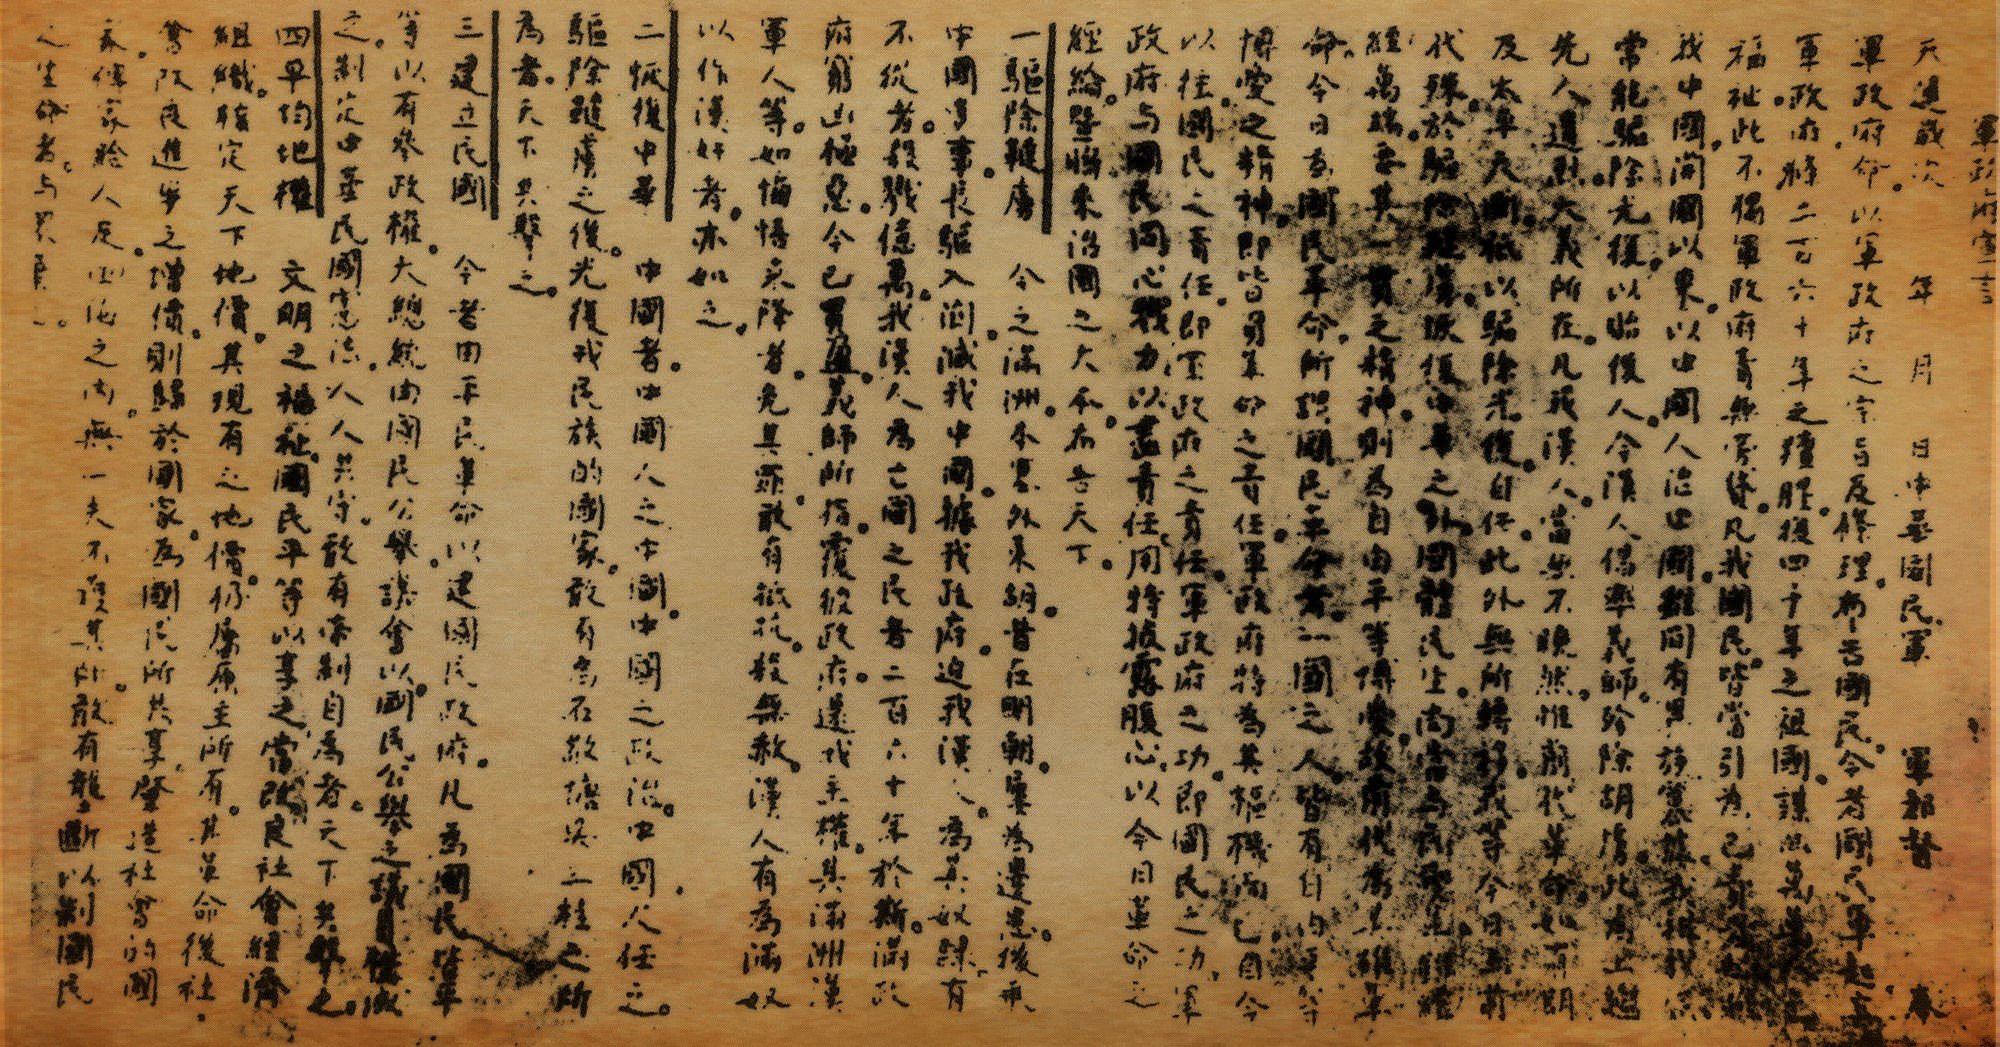 軍政府宣言
天運歲次 年 月 日中華國民軍 軍都督 奉
軍政府命。以軍政府之宗旨及條理。布告國民。今者國民軍起立
軍政府。滌二百六十年之羶腥。復四千年之祖國。謀四萬萬人之
福祉。此不獨軍政府責無旁貸。凡我國民。皆當引為己責者也。維
我中國。開國以來。以中國人治中國。雖間有異族篡據。我祖我宗
常能驅除光復。以貽後人。今漢人倡率義師。殄除胡虜。此為上繼
先人遺烈。大義所在。凡我漢人。當無不曉然。惟前代革命。如有明
及太平天國。祇以驅除光復自任。此外無所轉移。我等今日與前
代殊。於驅除韃虜。恢復中華之外。國體民生。尚當與民變革。雖經
緯萬端。要其一貫之精神。則為自由平等博愛。故前代為英雄革
命。今日為國民革命。所謂國民革命者。一國之人。皆有自由平等
博愛之精神。即皆負革命之責任。軍政府特為其樞機而已。自今
以往。國民之責任。即軍政府之責任。軍政府之功。即國民之功。軍
政府與國民同心戮力。以盡責任。用特披露腹心。以今日革命之
經綸。暨將來治國之大本。布告天下。
一驅除韃虜 今之滿洲。本塞外東胡。昔在明朝。屢為邊患。後乘
中國多事。長驅入關。滅我中國。據我政府。迫我漢人。為其奴隸。有
不從者。殺戮億萬。我漢人為亡國之民者二百六十年於斯。滿政
府窮凶極惡。今已貫盈。義師所指。覆彼政府。還我主權。其滿洲漢
軍人等。如悔悟來降者。免其罪。敢有抵抗。殺無赦。漢人有為滿奴
以作漢奸者。亦如之。
二恢復中華 中國者。中國人之中國。中國之政治。中國人任之。
驅除韃虜之後。光復我民族的國家。敢有為石敬瑭吳三桂之所
為者。天下共擊之。
三建立民國 今者由平民革命。以建國民政府。凡為國民皆平
等以有參政權。大總統由國民公舉。議會以國民公舉之議員構成
之。制定中華民國憲法。人人共守。敢有帝制自為者。天下共擊之。
四平均地權 文明之福祉。國民平等以享之。當改良社會經濟
組織。核定天下地價。其現有之地價。仍屬原主所有。其革命後社
會改良進步之增價。則歸於國家。為國民所共享。肇造社會的國
家。俾家給人足。四海之內。無一夫不獲其所。敢有壟斷以制國民
之生命者。與眾棄之。